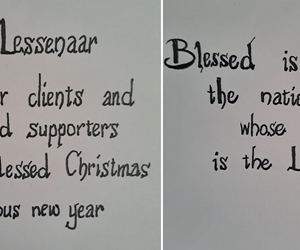 Lessenaar
r clients and
d supporters
lessed Christmas
ous new year
Blessed is
the nati
whose
is the L